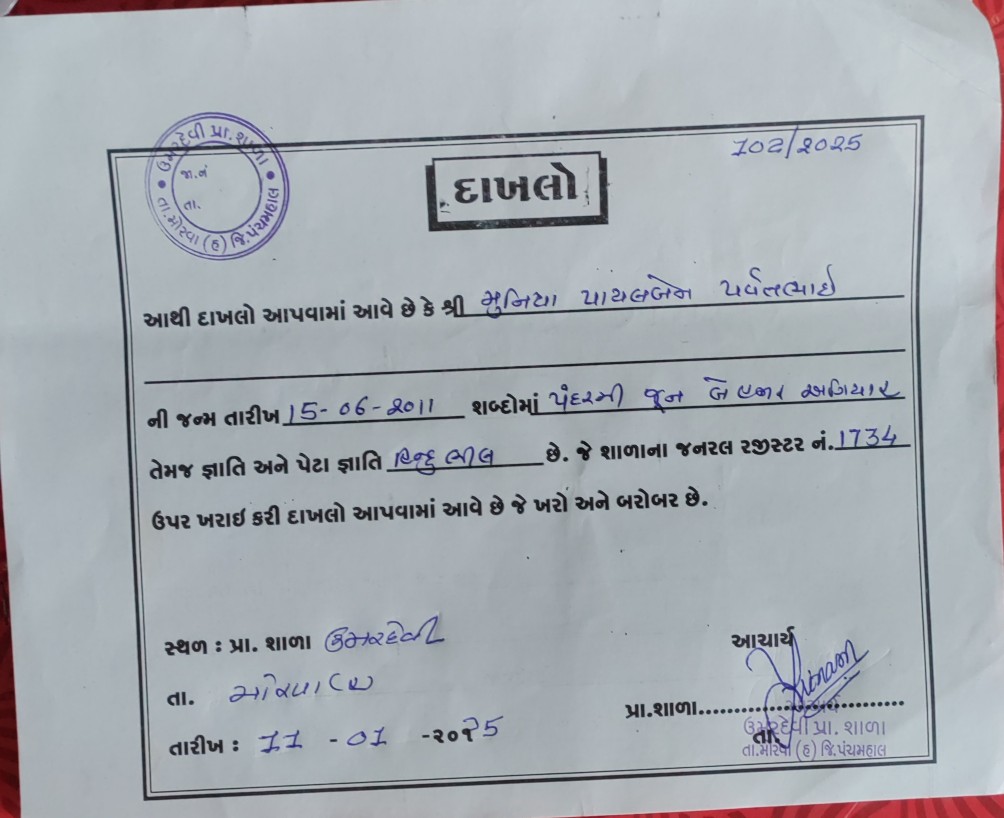 ઉમરદેવી પ્રા. શાળા
જા.નં
તા.
તા.મોરવા (હ) જિ.પંચમહાલ
102/2025
દાખલો
આથી દાખલો આપવામાં આવે છે કે શ્રી મુનિયા પાયલબેન પર્વતભાઈ
ની જન્મ તારીખ 15-06-2011 શબ્દોમાં પંદરમી જૂન બે હજાર અગિયાર
તેમજ જ્ઞાતિ અને પેટા જ્ઞાતિ હિન્દુ ભીલ છે. જે શાળાના જનરલ રજીસ્ટર નં. 1734
ઉપર ખરાઇ કરી દાખલો આપવામાં આવે છે જે ખરો અને બરોબર છે.
સ્થળ : પ્રા. શાળા ઉમરદેવી
આચાર્ય
તા. મોરવા (હ)
પ્રા.શાળા
તારીખ : 11 - 01 - ૨૦૨5
તા.
ઉમરદેવી પ્રા. શાળા
તા.મોરવા (હ) જિ.પંચમહાલ